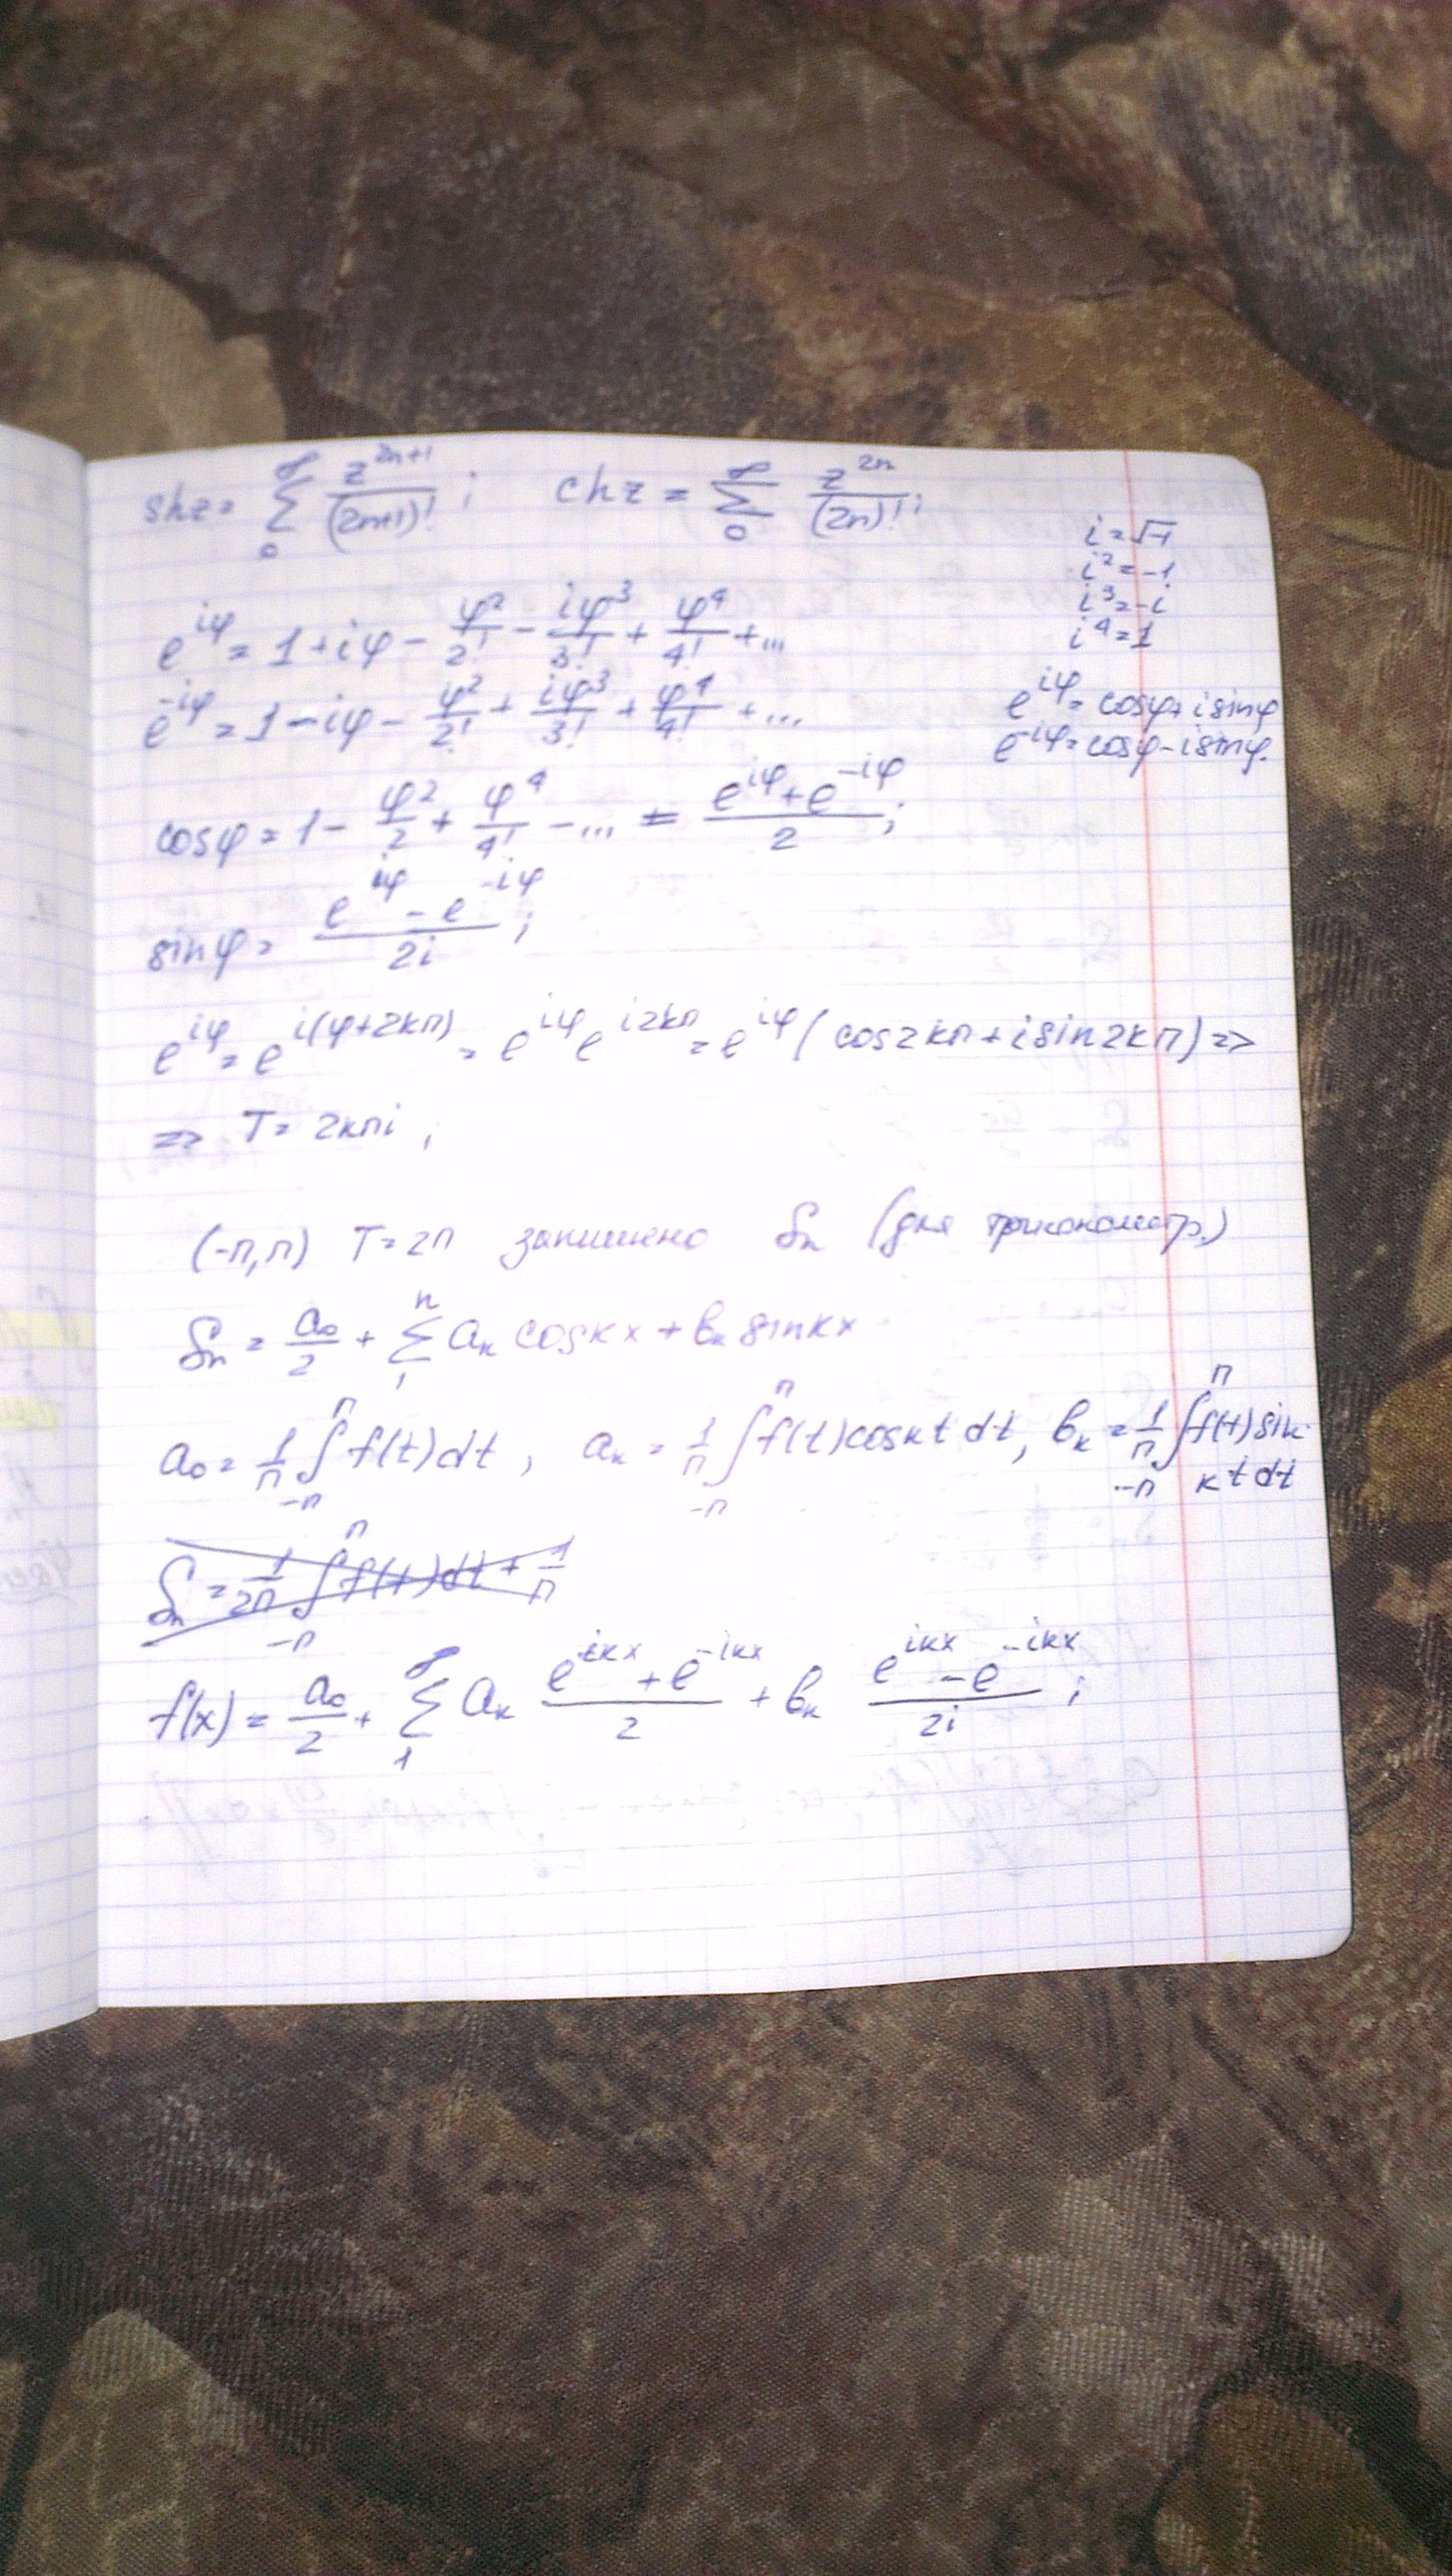 shz = ∑₀^∞ z^(2n+1)/(2n+1)! ; chz = ∑₀^∞ z^(2n)/(2n)! ;
i = √-1
i² = -1
i³ = -i
i⁴ = 1
e^(iφ) = 1 + iφ - φ²/2! - iφ³/3! + φ⁴/4! + ...
e^(-iφ) = 1 - iφ - φ²/2! + iφ³/3! + φ⁴/4! + ...
e^(iφ) = cosφ + i sinφ
e^(-iφ) = cosφ - i sinφ.
cosφ = 1 - φ²/2 + φ⁴/4! - ... = (e^(iφ) + e^(-iφ))/2 ;
sinφ = (e^(iφ) - e^(-iφ))/2i ;
e^(iφ) = e^(i(φ+2kπ)) = e^(iφ) e^(i2kπ) = e^(iφ) ( cos2kπ + i sin2kπ ) =>
=> T = 2kπi ,
(-π, π) T = 2π запишемо Sₙ (для тригонометр.)
Sₙ = a₀/2 + ∑₁ⁿ aₖ coskx + bₖ sinkx
a₀ = 1/π ∫_(-π)^π f(t)dt , aₖ = 1/π ∫_(-π)^π f(t)coskt dt, bₖ = 1/π ∫_(-π)^π f(t) sin
kt dt
Sₙ = 1/2π ∫_(-π)^π f(t)dt + 1/π
f(x) = a₀/2 + ∑₁^∞ aₖ (e^(ikx) + e^(-ikx))/2 + bₖ (e^(ikx) - e^(-ikx))/2i ;